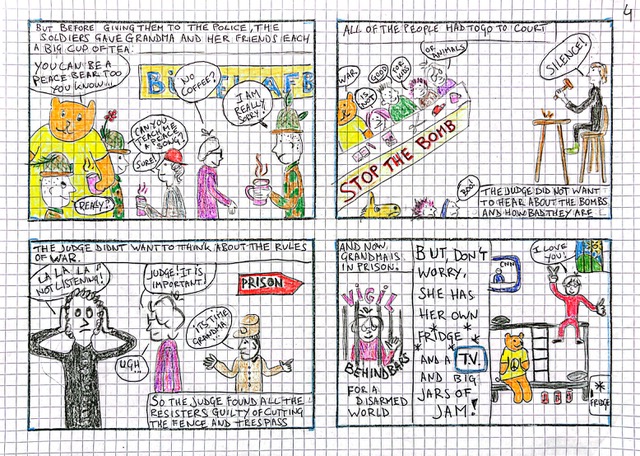 4
BUT BEFORE GIVING THEM TO THE POLICE, THE
SOLDIERS GAVE GRANDMA AND HER FRIENDS EACH
A BIG CUP OF TEA.
YOU CAN BE A
PEACE BEAR TOO
YOU KNOW...
REALLY?
CAN YOU
TEACH ME
A PEACE
SONG?
SURE!
NO
COFFEE?
I AM
REALLY
SORRY.
AFB
ALL OF THE PEOPLE HAD TO GO TO COURT
WAR
IS NOT
GOOD
FOR
KIDS
OR
ANIMALS
STOP THE BOMB
SILENCE!
BOO!
THE JUDGE DID NOT WANT
TO HEAR ABOUT THE BOMBS
AND HOW BAD THEY ARE
THE JUDGE DIDNT WANT TO THINK ABOUT THE RULES
OF WAR.
LA LA LA
NOT LISTENING!
JUDGE! IT IS
IMPORTANT!
UGH
PRISON
ITS TIME
GRANDMA
SO THE JUDGE FOUND ALL THE
RESISTERS GUILTY OF CUTTING
THE FENCE AND TRESPASS
AND NOW,
GRANDMA IS
IN PRISON.
VIGIL
BEHIND BARS
FOR A
DISARMED
WORLD
BUT, DON'T
WORRY,
SHE HAS
HER OWN
FRIDGE
AND A T.V.
AND BIG
JARS OF
JAM!
CNN
I LOVE
YOU!
FRIDGE